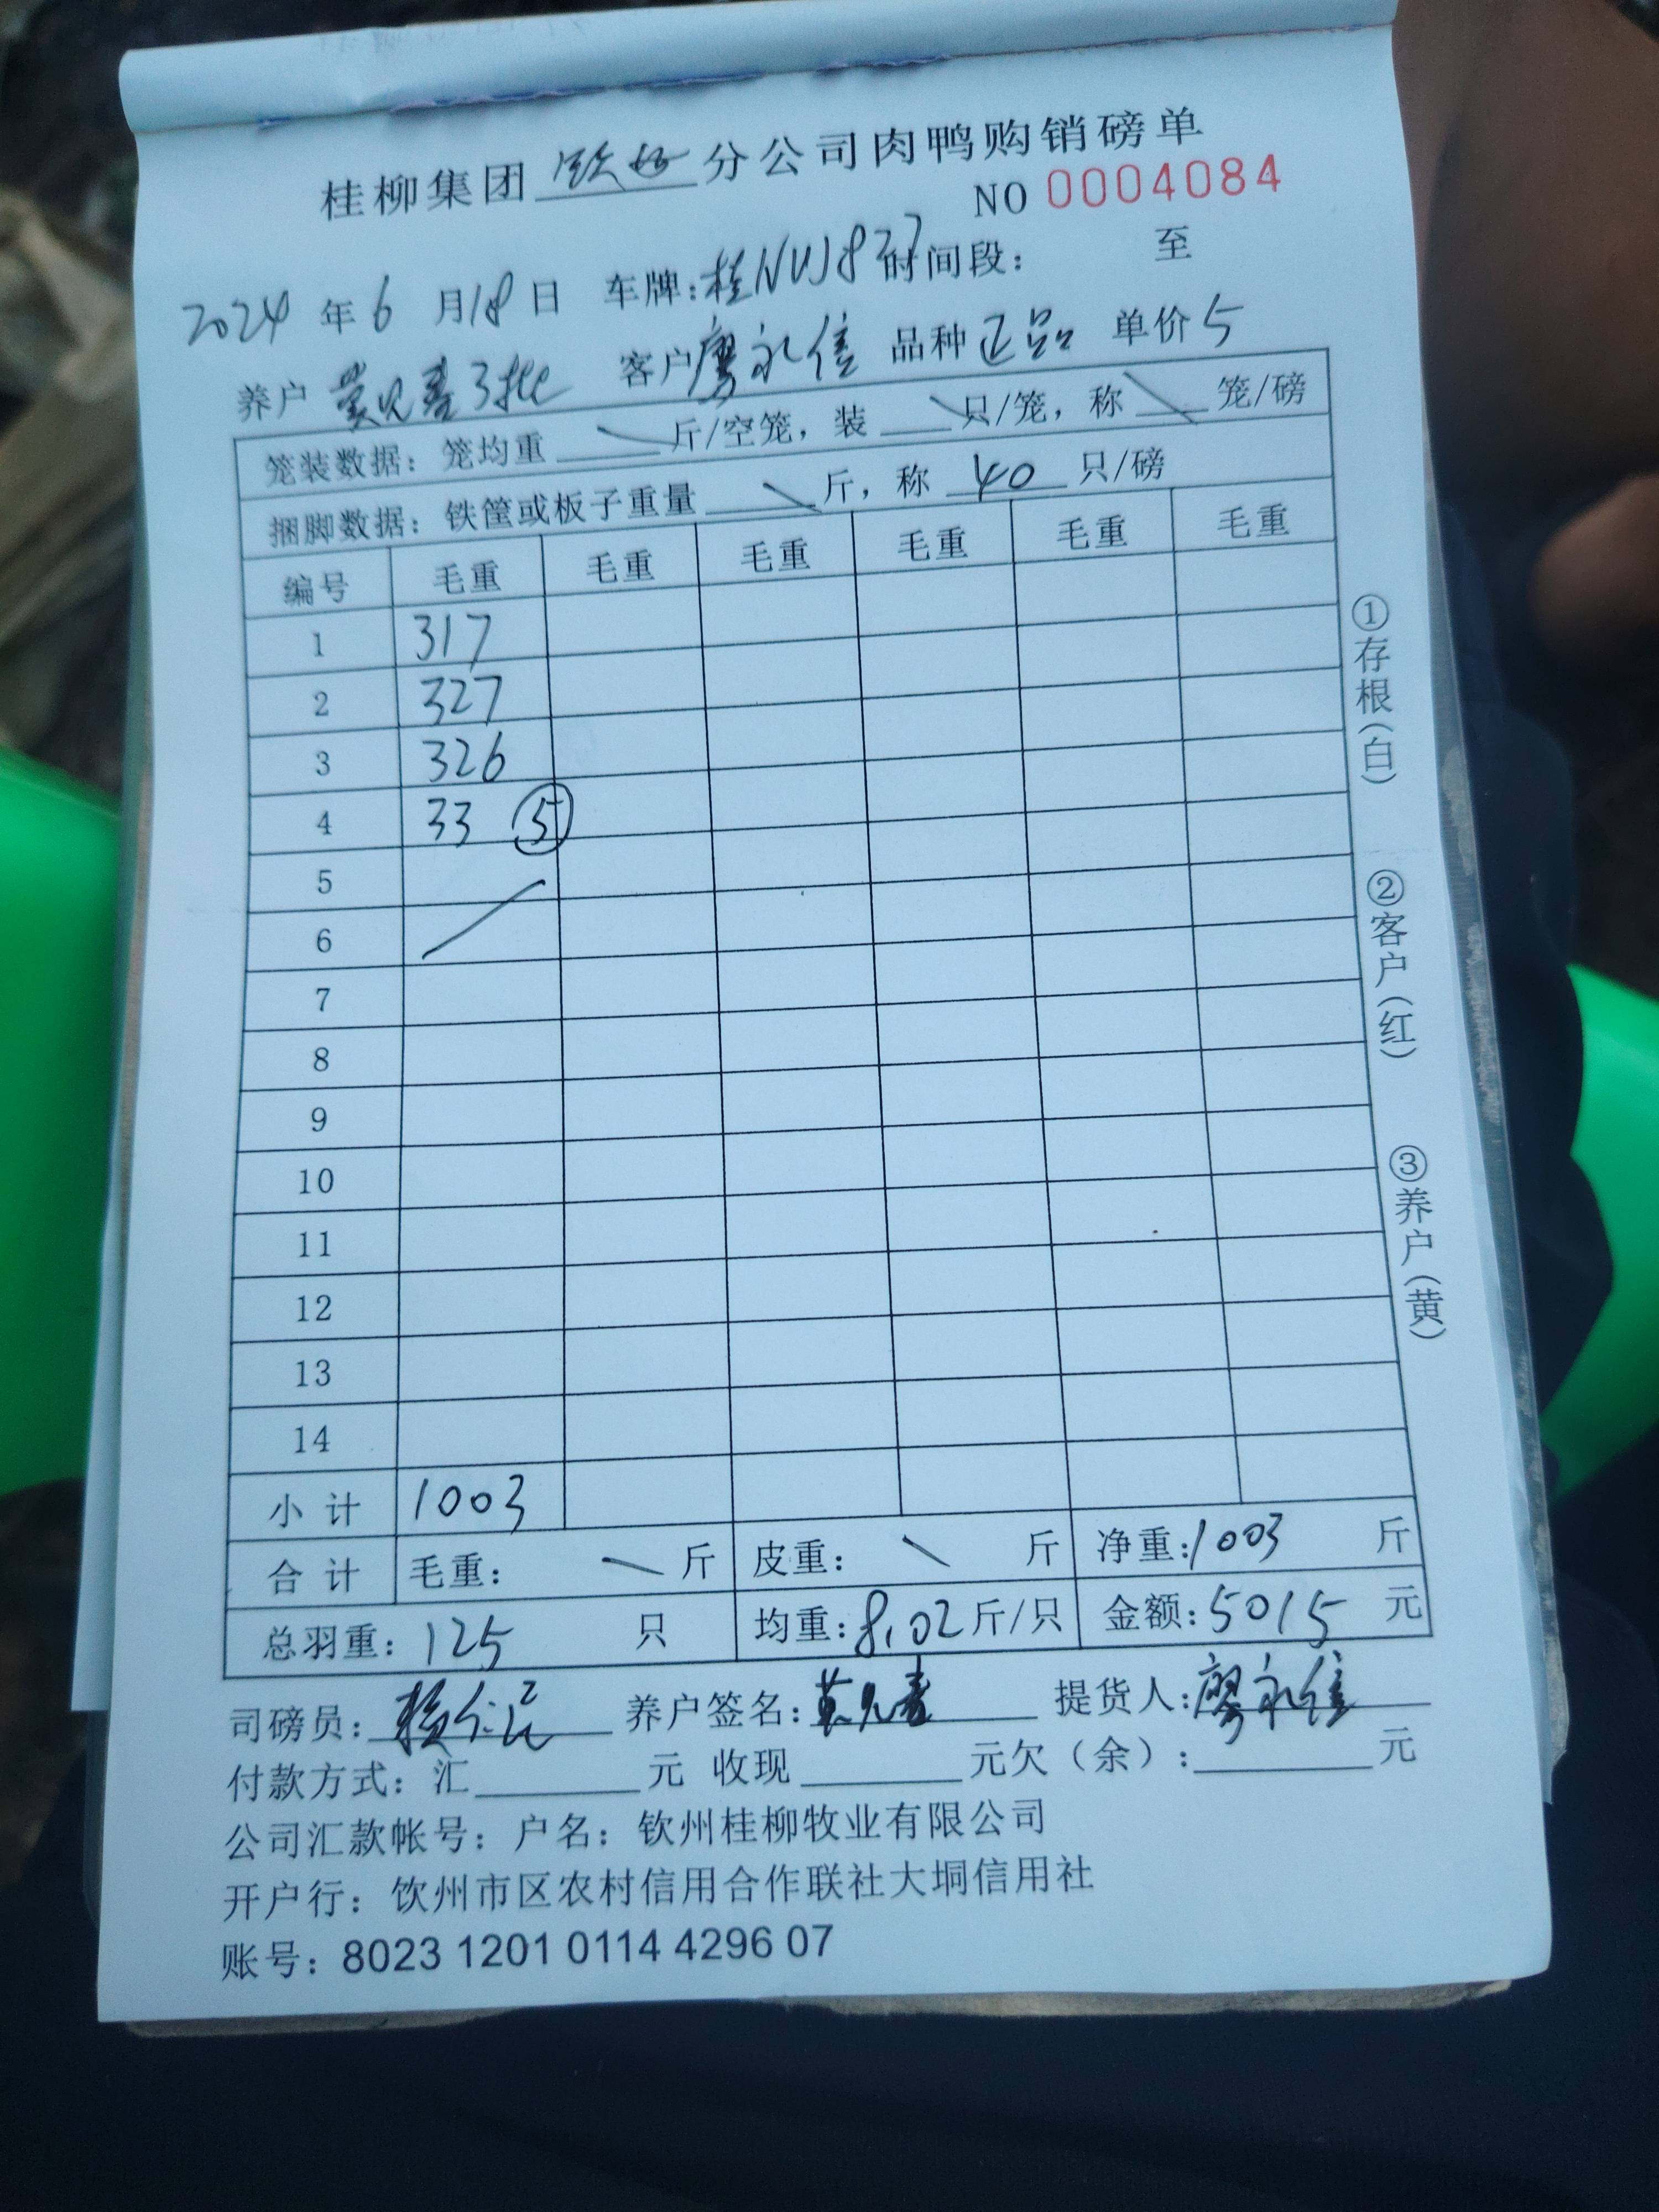 桂柳集团 分公司肉鸭购销磅单
NO 0004084
2024 年 6 月 18 日 车牌: 桂NWJ877 时间段: 至
养户 3批 客户 廖永信 品种 正品 单价 5
笼装数据: 笼均重 斤/空笼, 装 只/笼, 称 笼/磅
捆脚数据: 铁筐或板子重量 斤, 称 40 只/磅
编号 毛重 毛重 毛重 毛重 毛重 毛重
1 317
2 327
3 326
4 33 ⑤
5
6
7
8
9
10
11
12
13
14
小 计 1003
合 计 毛重: 斤 皮重: 斤 净重: 1003 斤
总羽重: 125 只 均重: 8.02 斤/只 金额: 5015 元
司磅员: 养户签名: 提货人: 廖永信
付款方式: 汇 元 收现 元欠（余）: 元
公司汇款帐号: 户名: 钦州桂柳牧业有限公司
开户行: 饮州市区农村信用合作联社大垌信用社
账号: 8023 1201 0114 4296 07
①存根（白）
②客户（红）
③养户（黄）